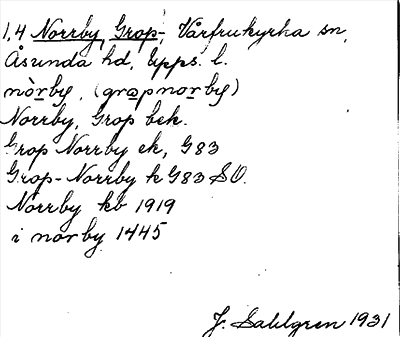 1,4 Norrby, Grop-, Vårfrukyrka sn,
Åsunda hd, Upps. l.
nòrby, (gropnorby)
Norrby, Grop bek.
Grop Norrby ek, G83
Grop-Norrby k G83 SO.
Norrby kb 1919
i norby 1445
J. Sahlgren 1931